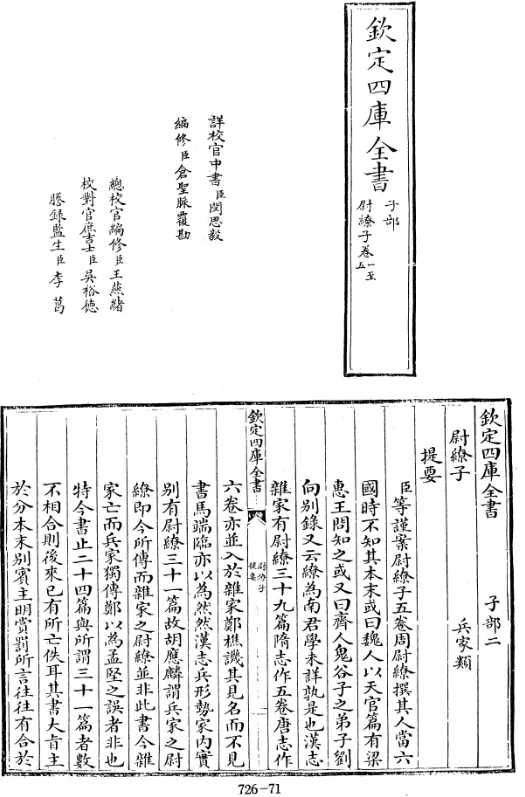 欽定四庫全書
子部
尉繚子卷一至五
詳校官中書臣閔思毅
編修臣倉聖脈覆勘
總校官編修臣王燕緒
校對官庶吉士臣吳裕德
謄錄監生臣李萼
欽定四庫全書
子部二
尉繚子
兵家類
提要
臣等謹案尉繚子五卷周尉繚撰其人當六
國時不知其本末或曰魏人以天官篇有梁
惠王問知之或又曰齊人鬼谷子之弟子劉
向別錄又云繚為商君學未詳孰是也漢志
雜家有尉繚三十九篇隋志作五卷唐志作
欽定四庫全書
尉繚子
提要
一
六卷亦並入於雜家鄭樵譏其見名而不見
書馬端臨亦以為然然漢志兵形勢家內實
別有尉繚三十一篇故胡應麟謂兵家之尉
繚即今所傳而雜家之尉繚並非此書今雜
家亡而兵家獨傳鄭以為孟堅之誤者非也
特今書止二十四篇與所謂三十一篇者數
不相合則後來已有所亡佚耳其書大旨主
於分本末別賓主明賞罰所言往往有合於
726-71